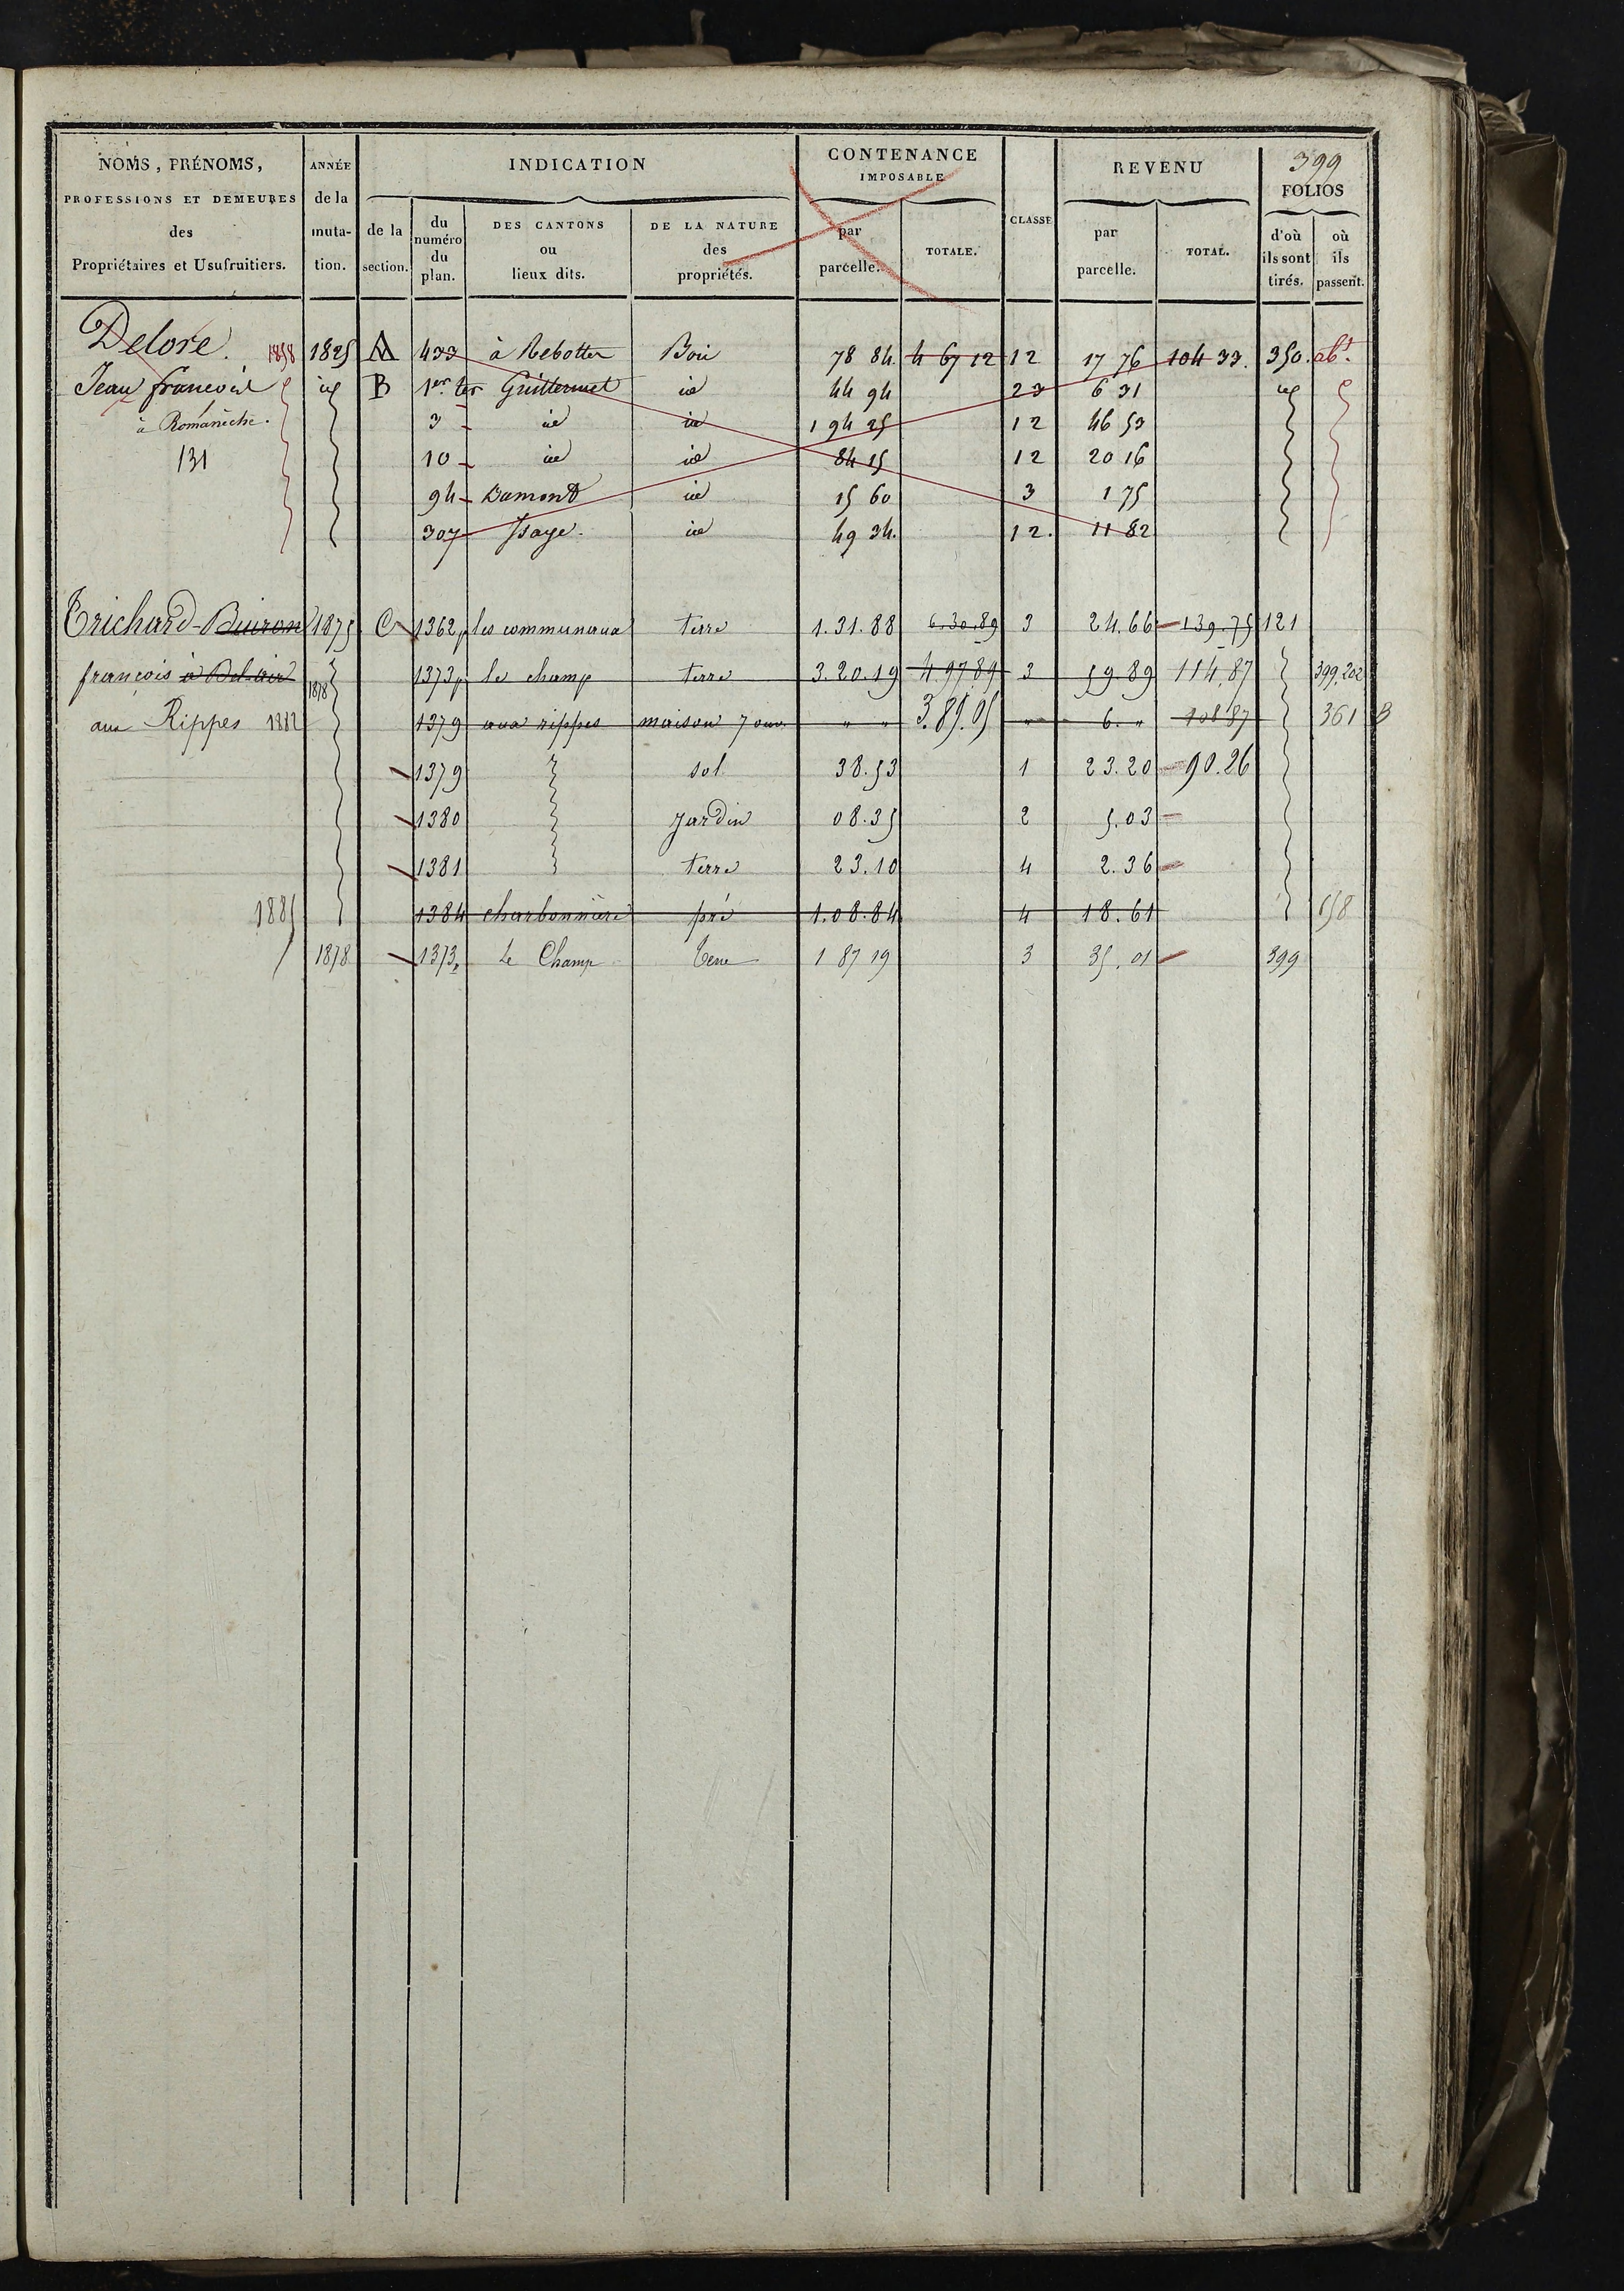 399
NOMS, PRÉNOMS, PROFESSIONS ET DEMEURES des Propriétaires et Usufruitiers.
ANNÉE de la muta- tion.
INDICATION
de la section.
du numéro du plan.
DES CANTONS ou lieux dits.
DE LA NATURE des propriétés.
CONTENANCE IMPOSABLE
par parcelle.
TOTALE.
CLASSE
REVENU
par parcelle.
TOTAL.
FOLIOS
d'où ils sont tirés.
où ils passent.
Delore. 1858 1825 A 433 à Rebotter Bois 78 84 4 67 12 12 17 76 104 33. 350. abt.
Jean francois id B 1er ter Guillermet id 44 94 23 6 31 id
à Romanèche. 3 id id 1 94 25 12 46 53
131 10 id id 84 15 12 20 16
94 Dumont id 15 60 3 1 75
307 Isaye id 49 34. 12. 11 82
Trichard-Buiron 1875 C 1362p les communaux terre 1.31.88 6.30.89 3 24.66 139.75 121
françois à Bel-air 1878 1373p le champ terre 3.20.19 4 97 89 3 59 89 114,87 399,202
aux Rippes 1882 1379 aux rippes maison 7 ouv. " " 3.89.05 " 6. " 108 87 361 B
1379 sol 38.53 1 23.20 90.26
1380 Jardin 08.35 2 5.03
1381 terre 23.10 4 2.36
1885 1384 charbonnière pré 1.08.84 4 18.61 158
1878 1373p Le Champ Terre 1 87 19 3 35.01 399